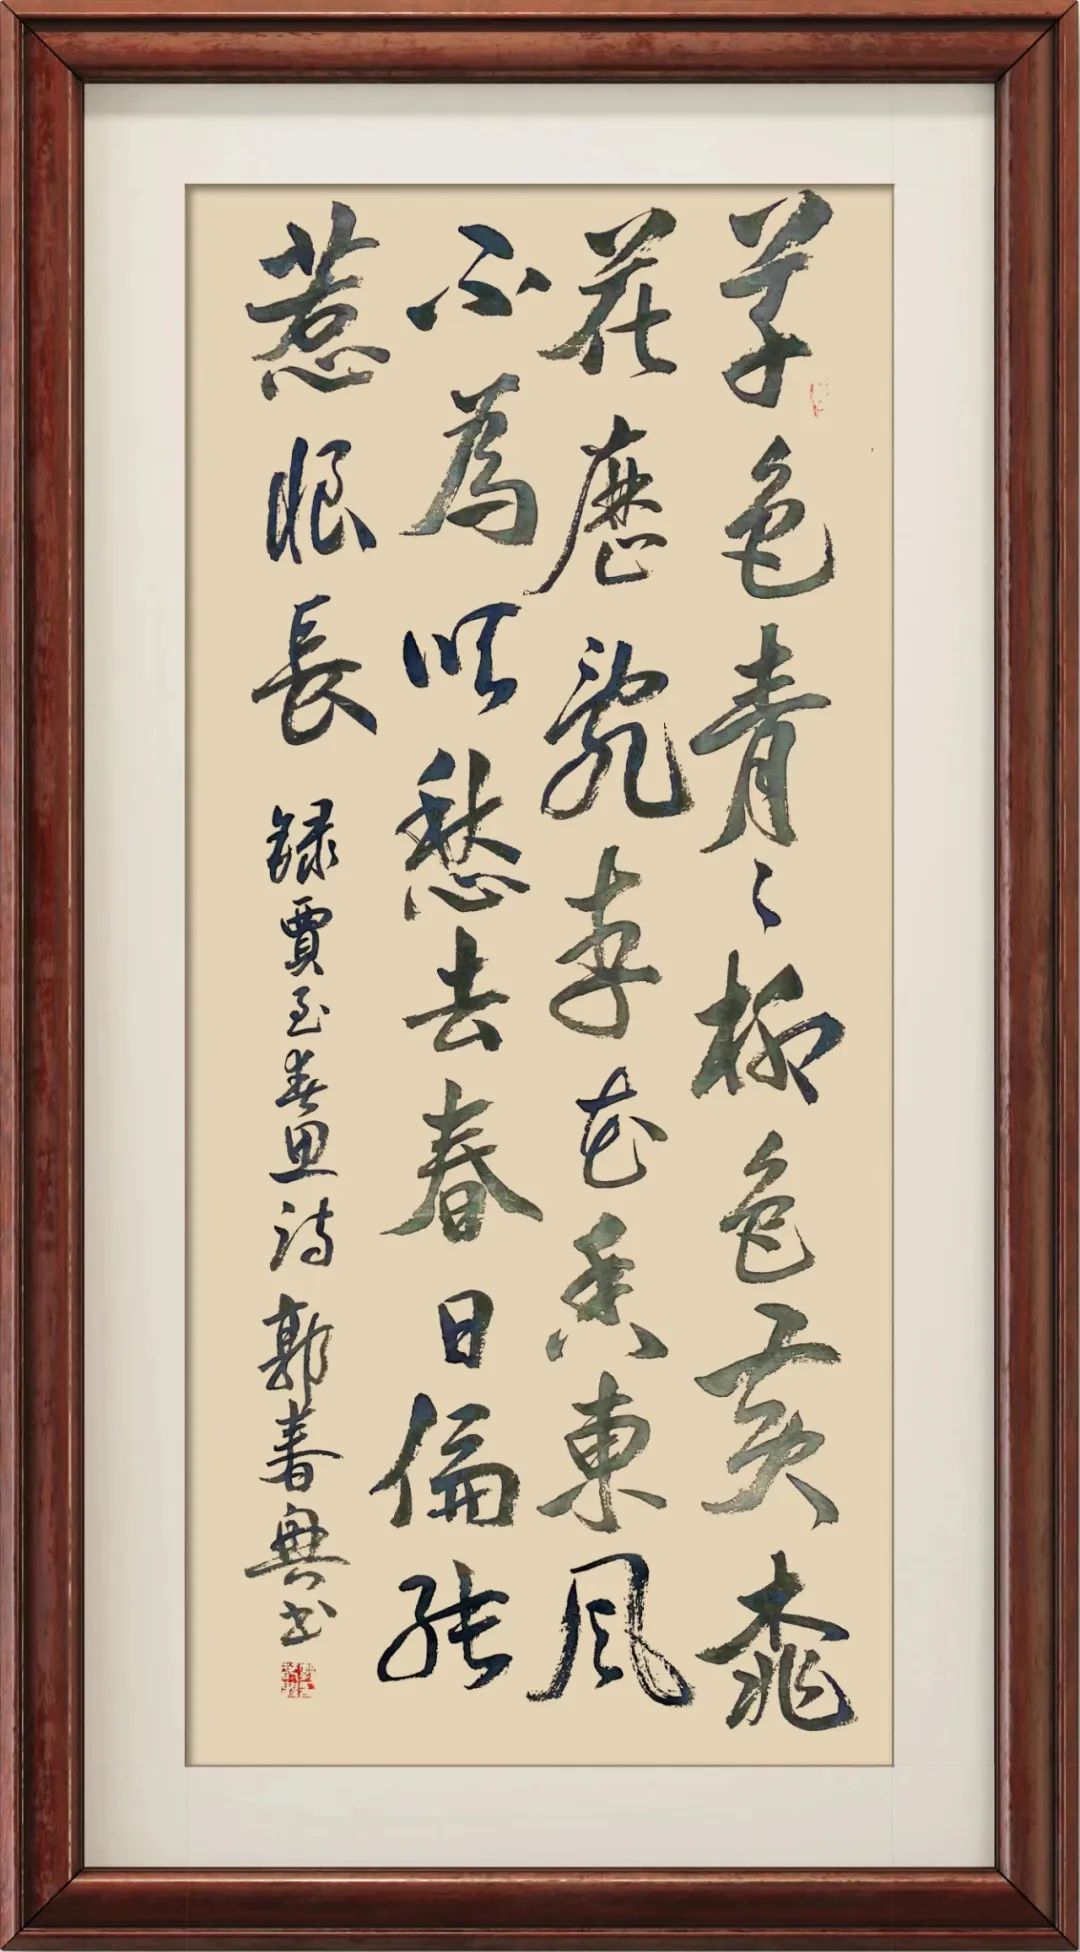 草色青〻柳色黄桃
花歷亂李花香東風
不為吹愁去春日偏能
惹恨長 録賈至春思詩 郭春書